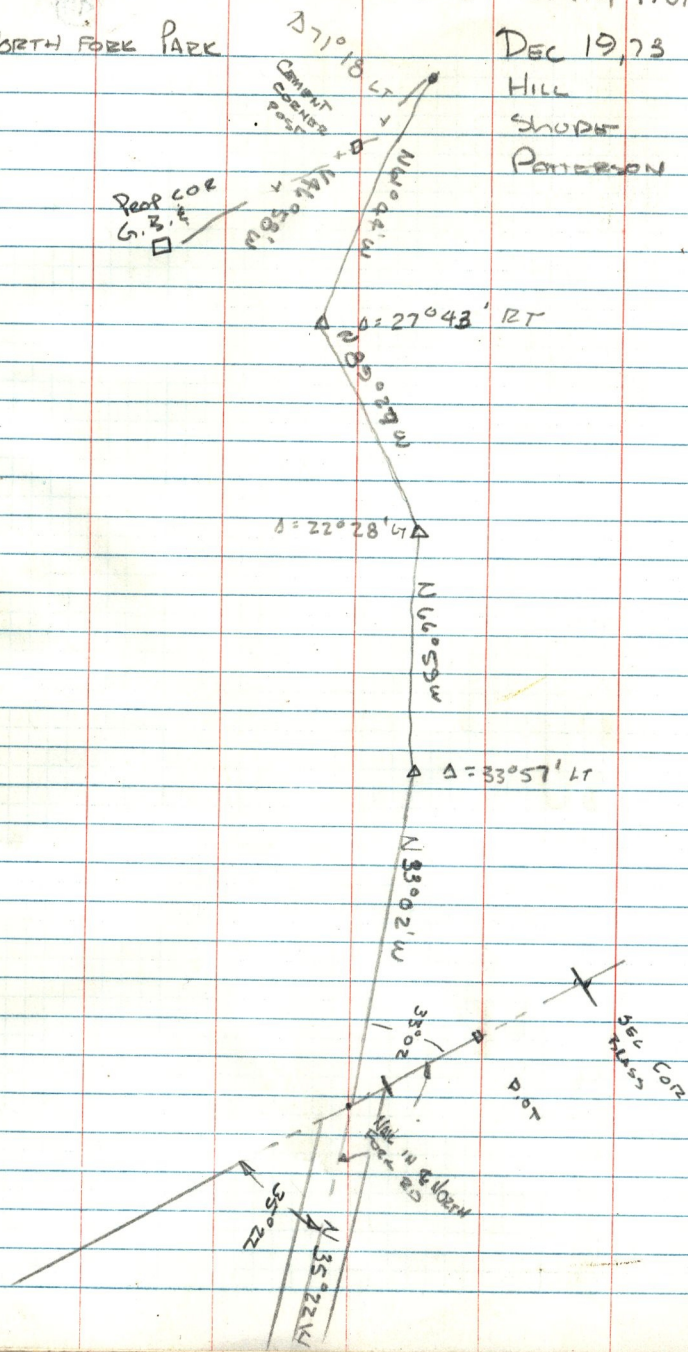 ORTH FORK PARK
DEC 19, 73
HILL
SHUPE
PATTERSON
Δ 71° 18 LT
CEMENT
CORNER
POST
PROP COR
G.B.&
N46°58'W
Δ = 27°43' RT
N 89°29 W
Δ = 22°28' LT
N 66°59 W
Δ = 33°57' LT
N 33°02' W
33°02
SEC COR
BRASS
P.OT
NAIL IN ℄ NORTH
FORK RD
35°22
N 35°22 W